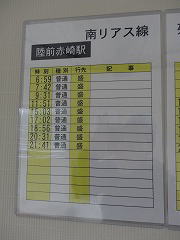 南リアス線
陸前赤崎駅
時刻 種別 行先 記事
6:59 普通 盛
7:42 普通 盛
9:31 普通 盛
11:51 普通 盛
15:03 普通 盛
17:02 普通 盛
18:56 普通 盛
20:31 普通 盛
21:41 普通 盛